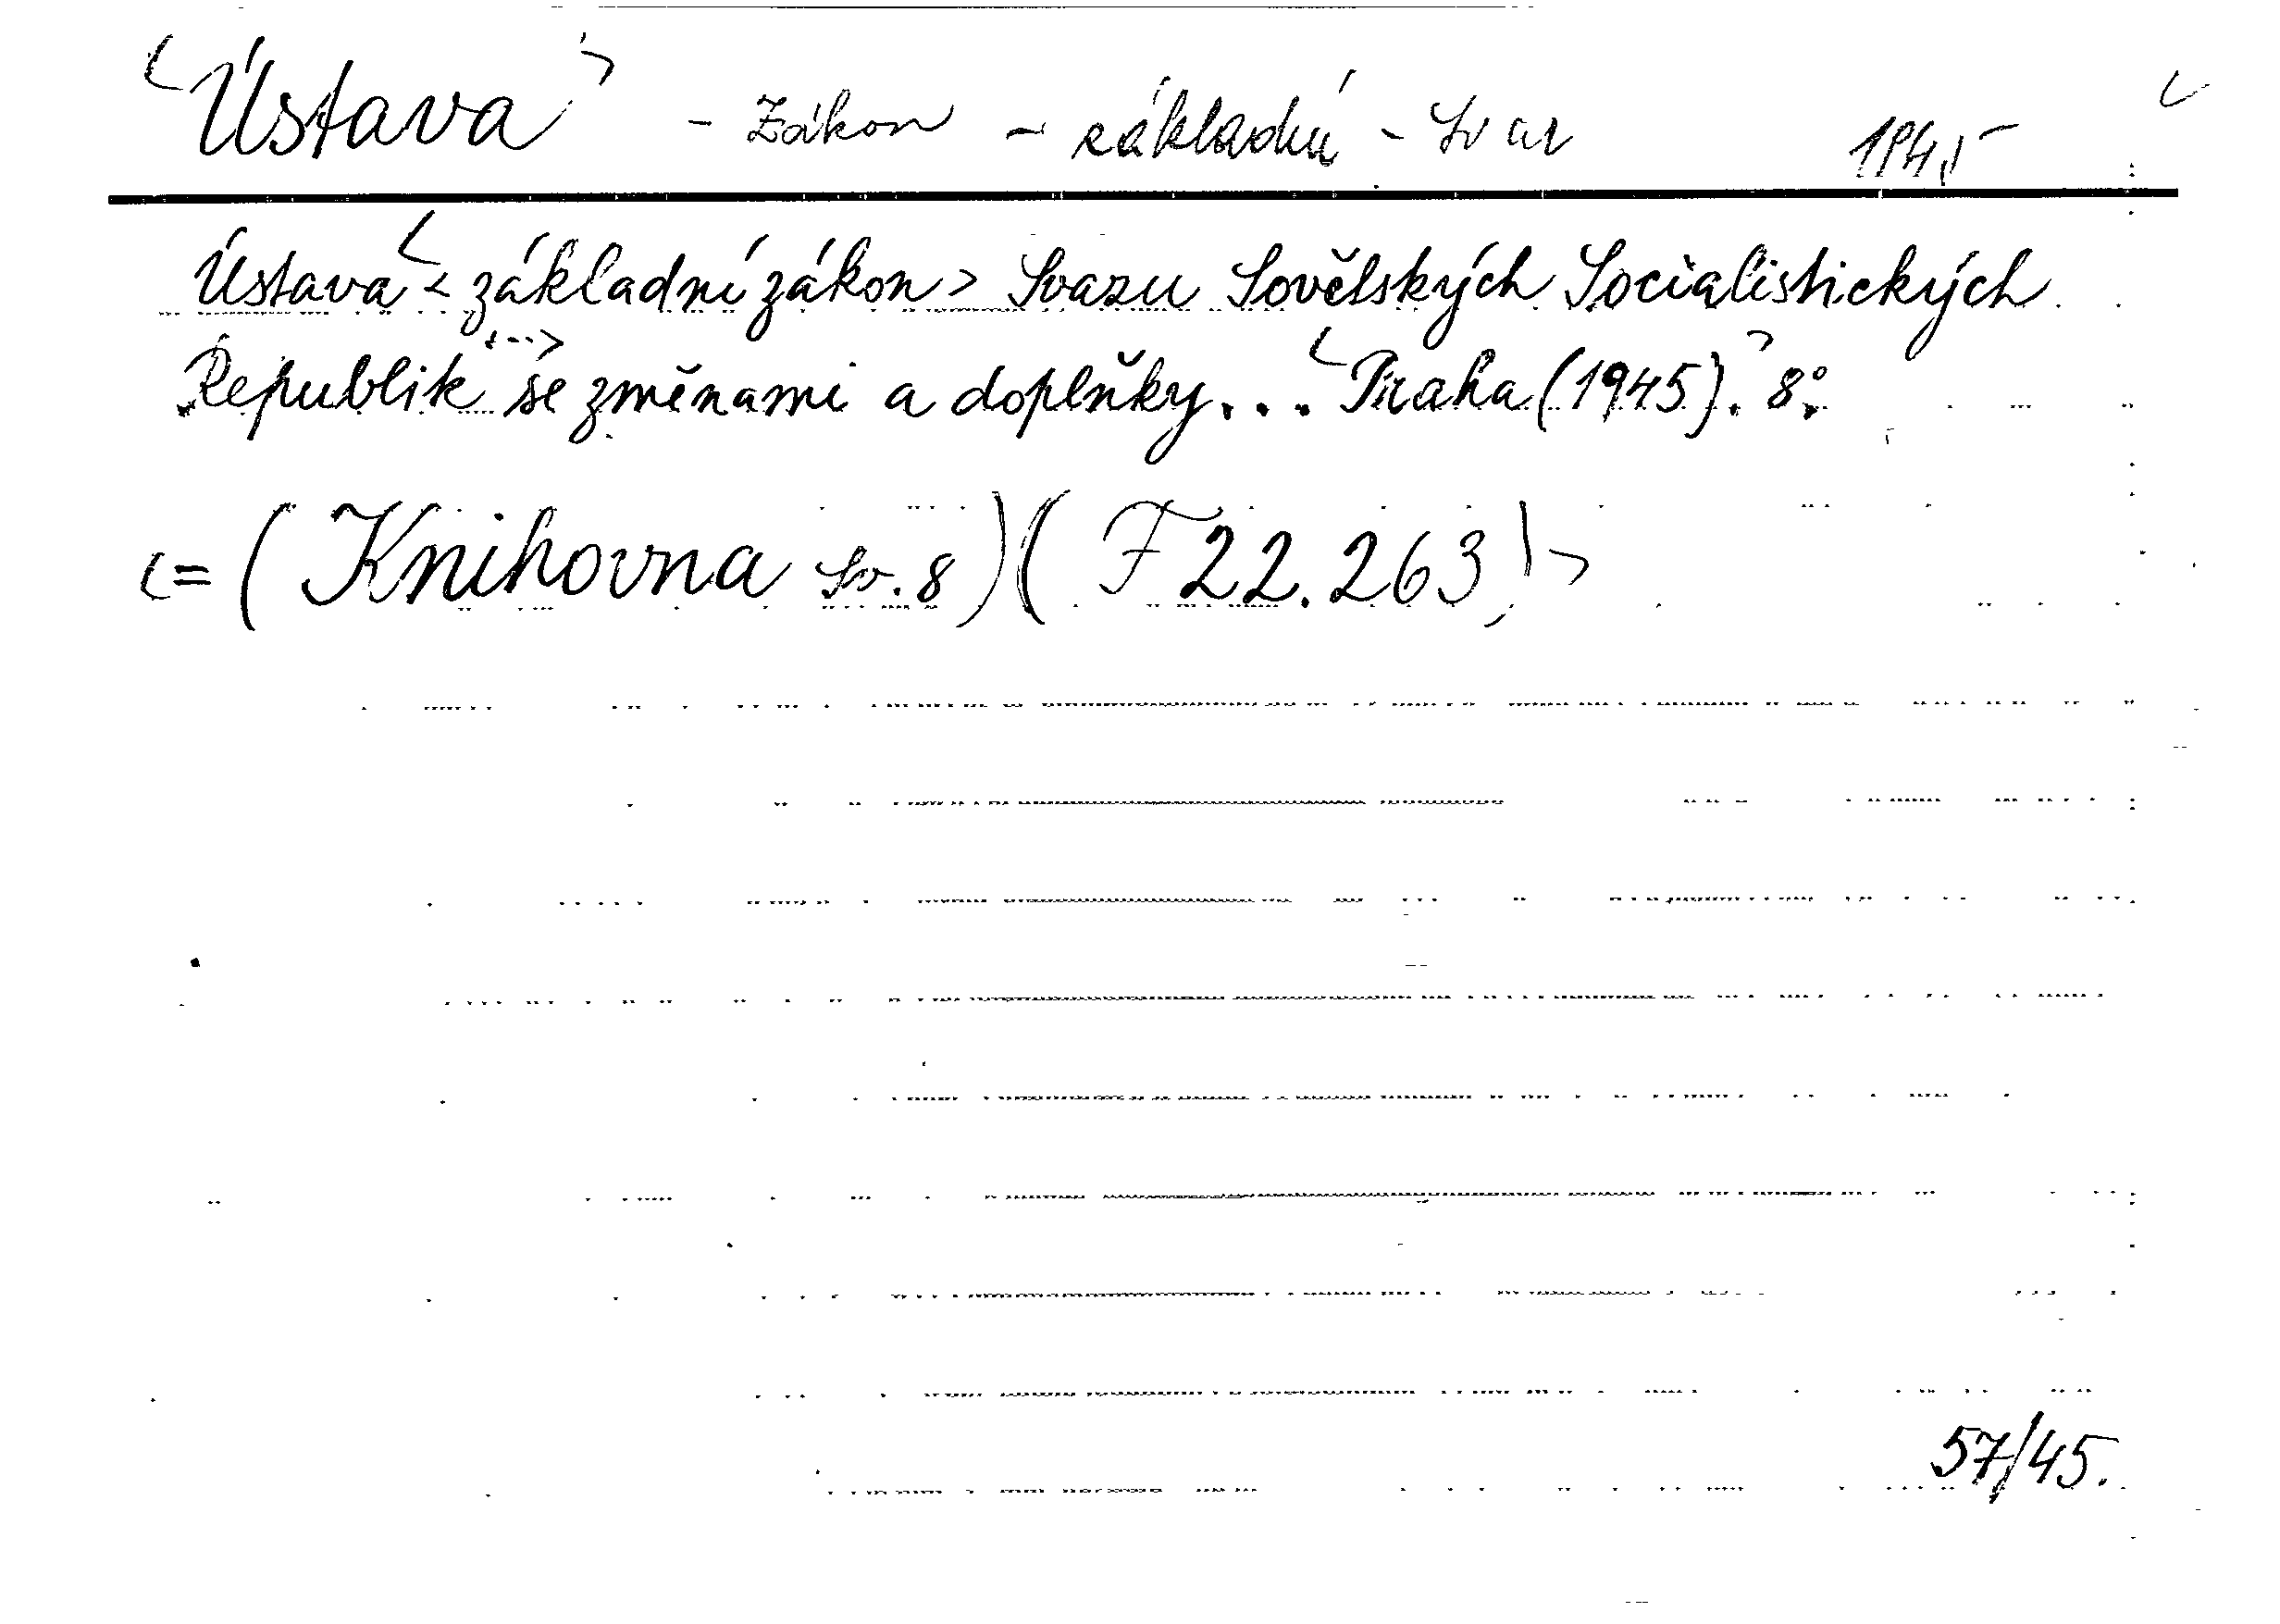 Ústava - Zákon - základní - Svaz 1945
Ústava < základní zákon > Svazu Sovětských Socialistických
Republik se změnami a doplňky... Praha (1945). 8°.
= ( Knihovna sv. 8 ) ( F 22.263 )
57/45.